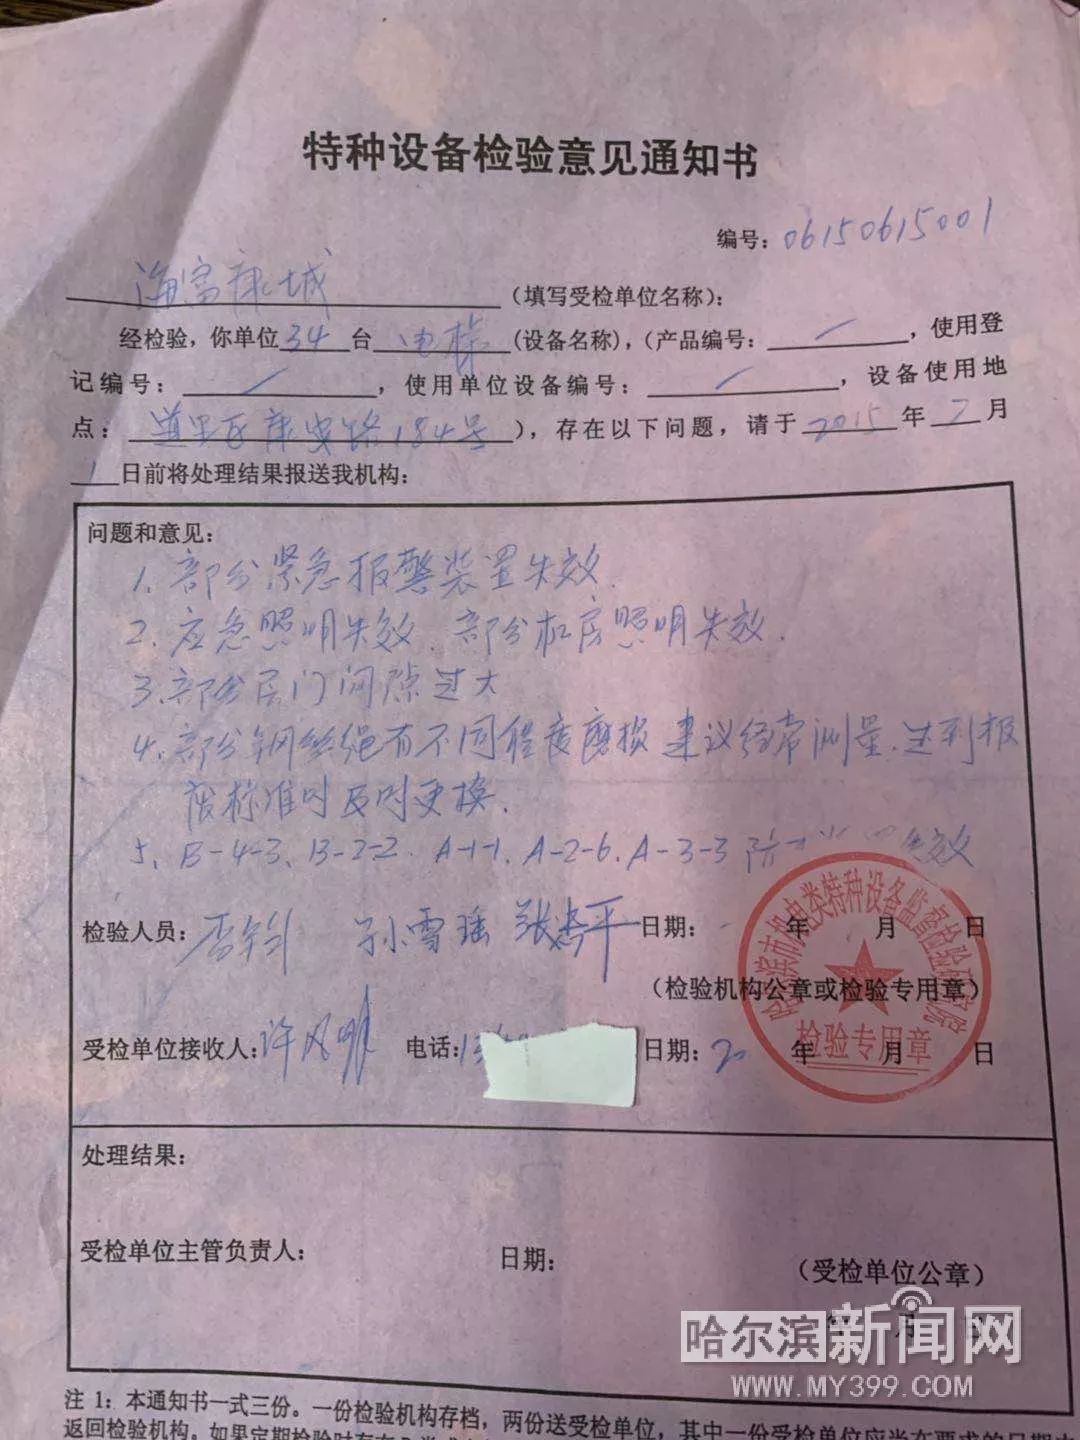 特种设备检验意见通知书
编号：06150615001
海富康城（填写受检单位名称）：
经检验，你单位34台电梯（设备名称），（产品编号：/，使用登
记编号：/，使用单位设备编号：/，设备使用地
点：道里区康安路184号），存在以下问题，请于2015年7月
1日前将处理结果报送我机构：
问题和意见：
1、部分紧急报警装置失效.
2、应急照明失效、部分机房照明失效.
3、部分层门间隙过大
4、部分钢丝绳有不同程度磨损 建议经常测量.达到报
废标准时及时更换.
5、B-4-3、B-2-2、A-1-1、A-2-6、A-3-3 失效
检验人员： 孙雪瑶 日期： 年 月 日
（检验机构公章或检验专用章）
哈尔滨市机电类特种设备监督检验研究院
检验专用章
受检单位接收人：许凤 电话：1 日期：20 年 月 日
处理结果：
受检单位主管负责人： 日期： （受检单位公章）
年 月 日
哈尔滨新闻网
WWW.MY399.COM
注 1：本通知书一式三份。一份检验机构存档，两份送受检单位，其中一份受检单位应当在要求的日期内
返回检验机构。如果定期检验时存在